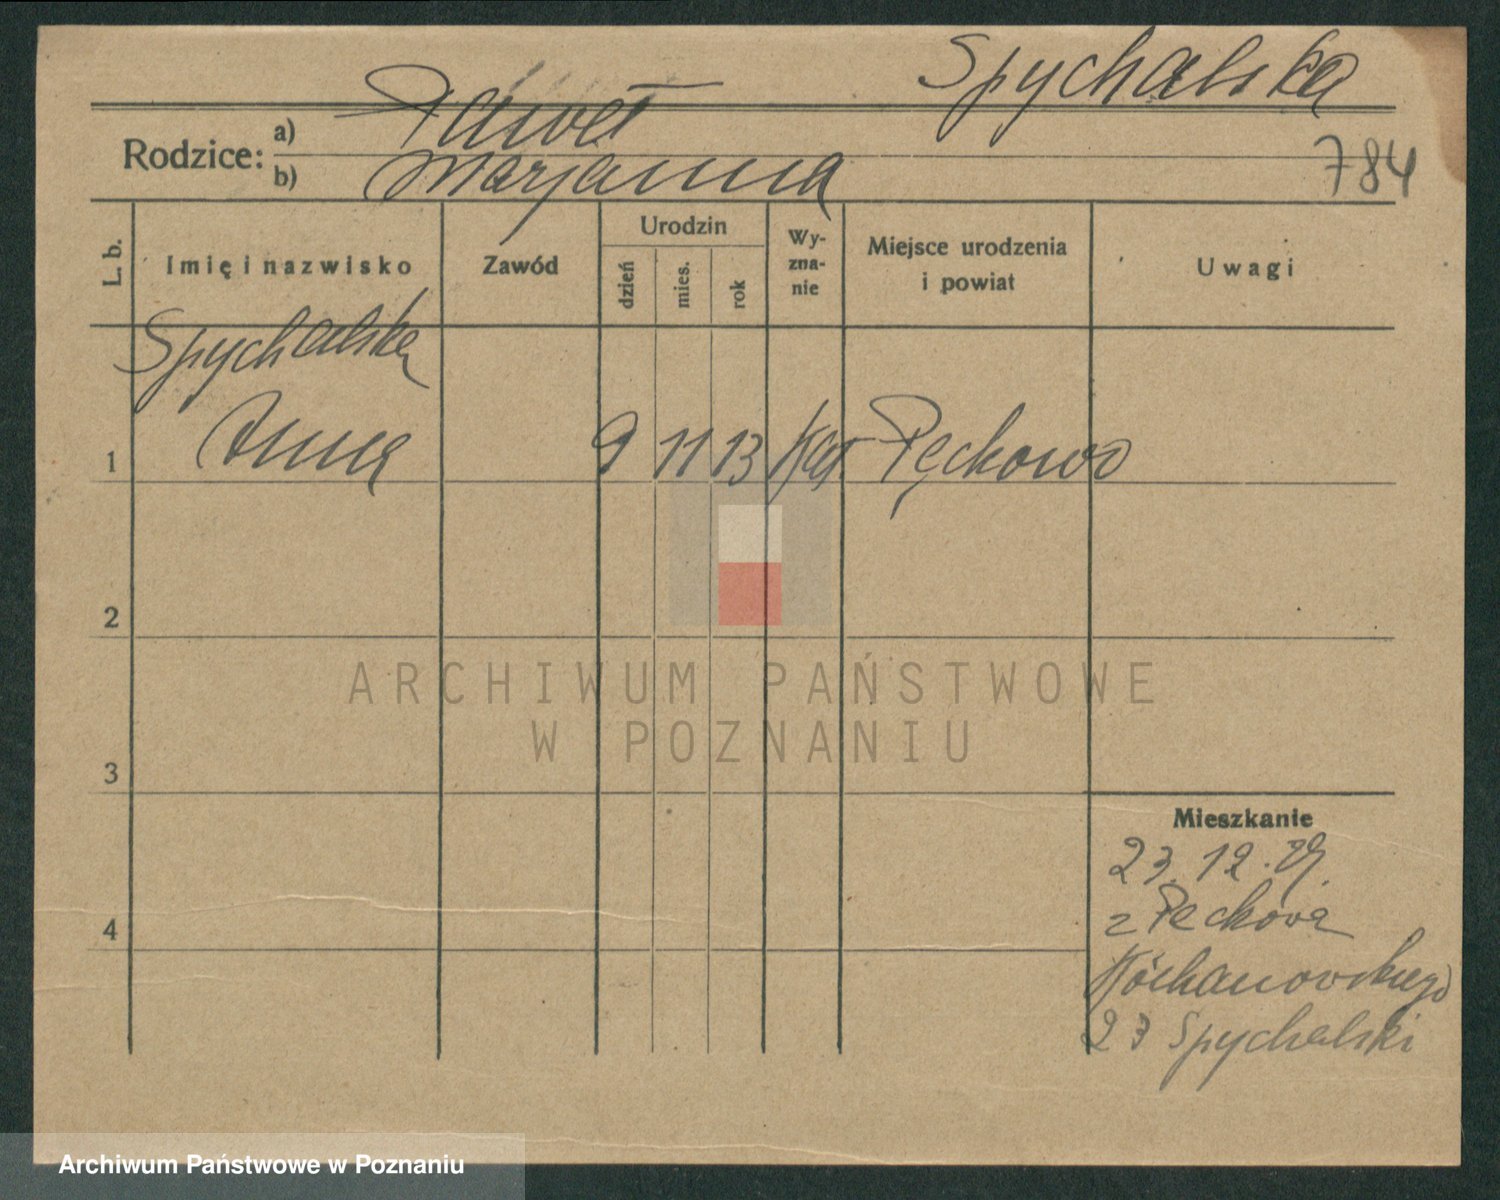 Spychalska
Rodzice: a) Paweł
b) Marjanna
784
L. b.
Imię i nazwisko
Zawód
Urodzin
dzień
mies.
rok
Wy-
zna-
nie
Miejsce urodzenia
i powiat
Uwagi
Spychalska
1 Anna 9 11 13 kat Pęckowo
2
3
4
ARCHIWUM PAŃSTWOWE
W POZNANIU
Mieszkanie
23. 12.
z Pęckowa
Kochanowskiego
23 Spychalski
Archiwum Państwowe w Poznaniu